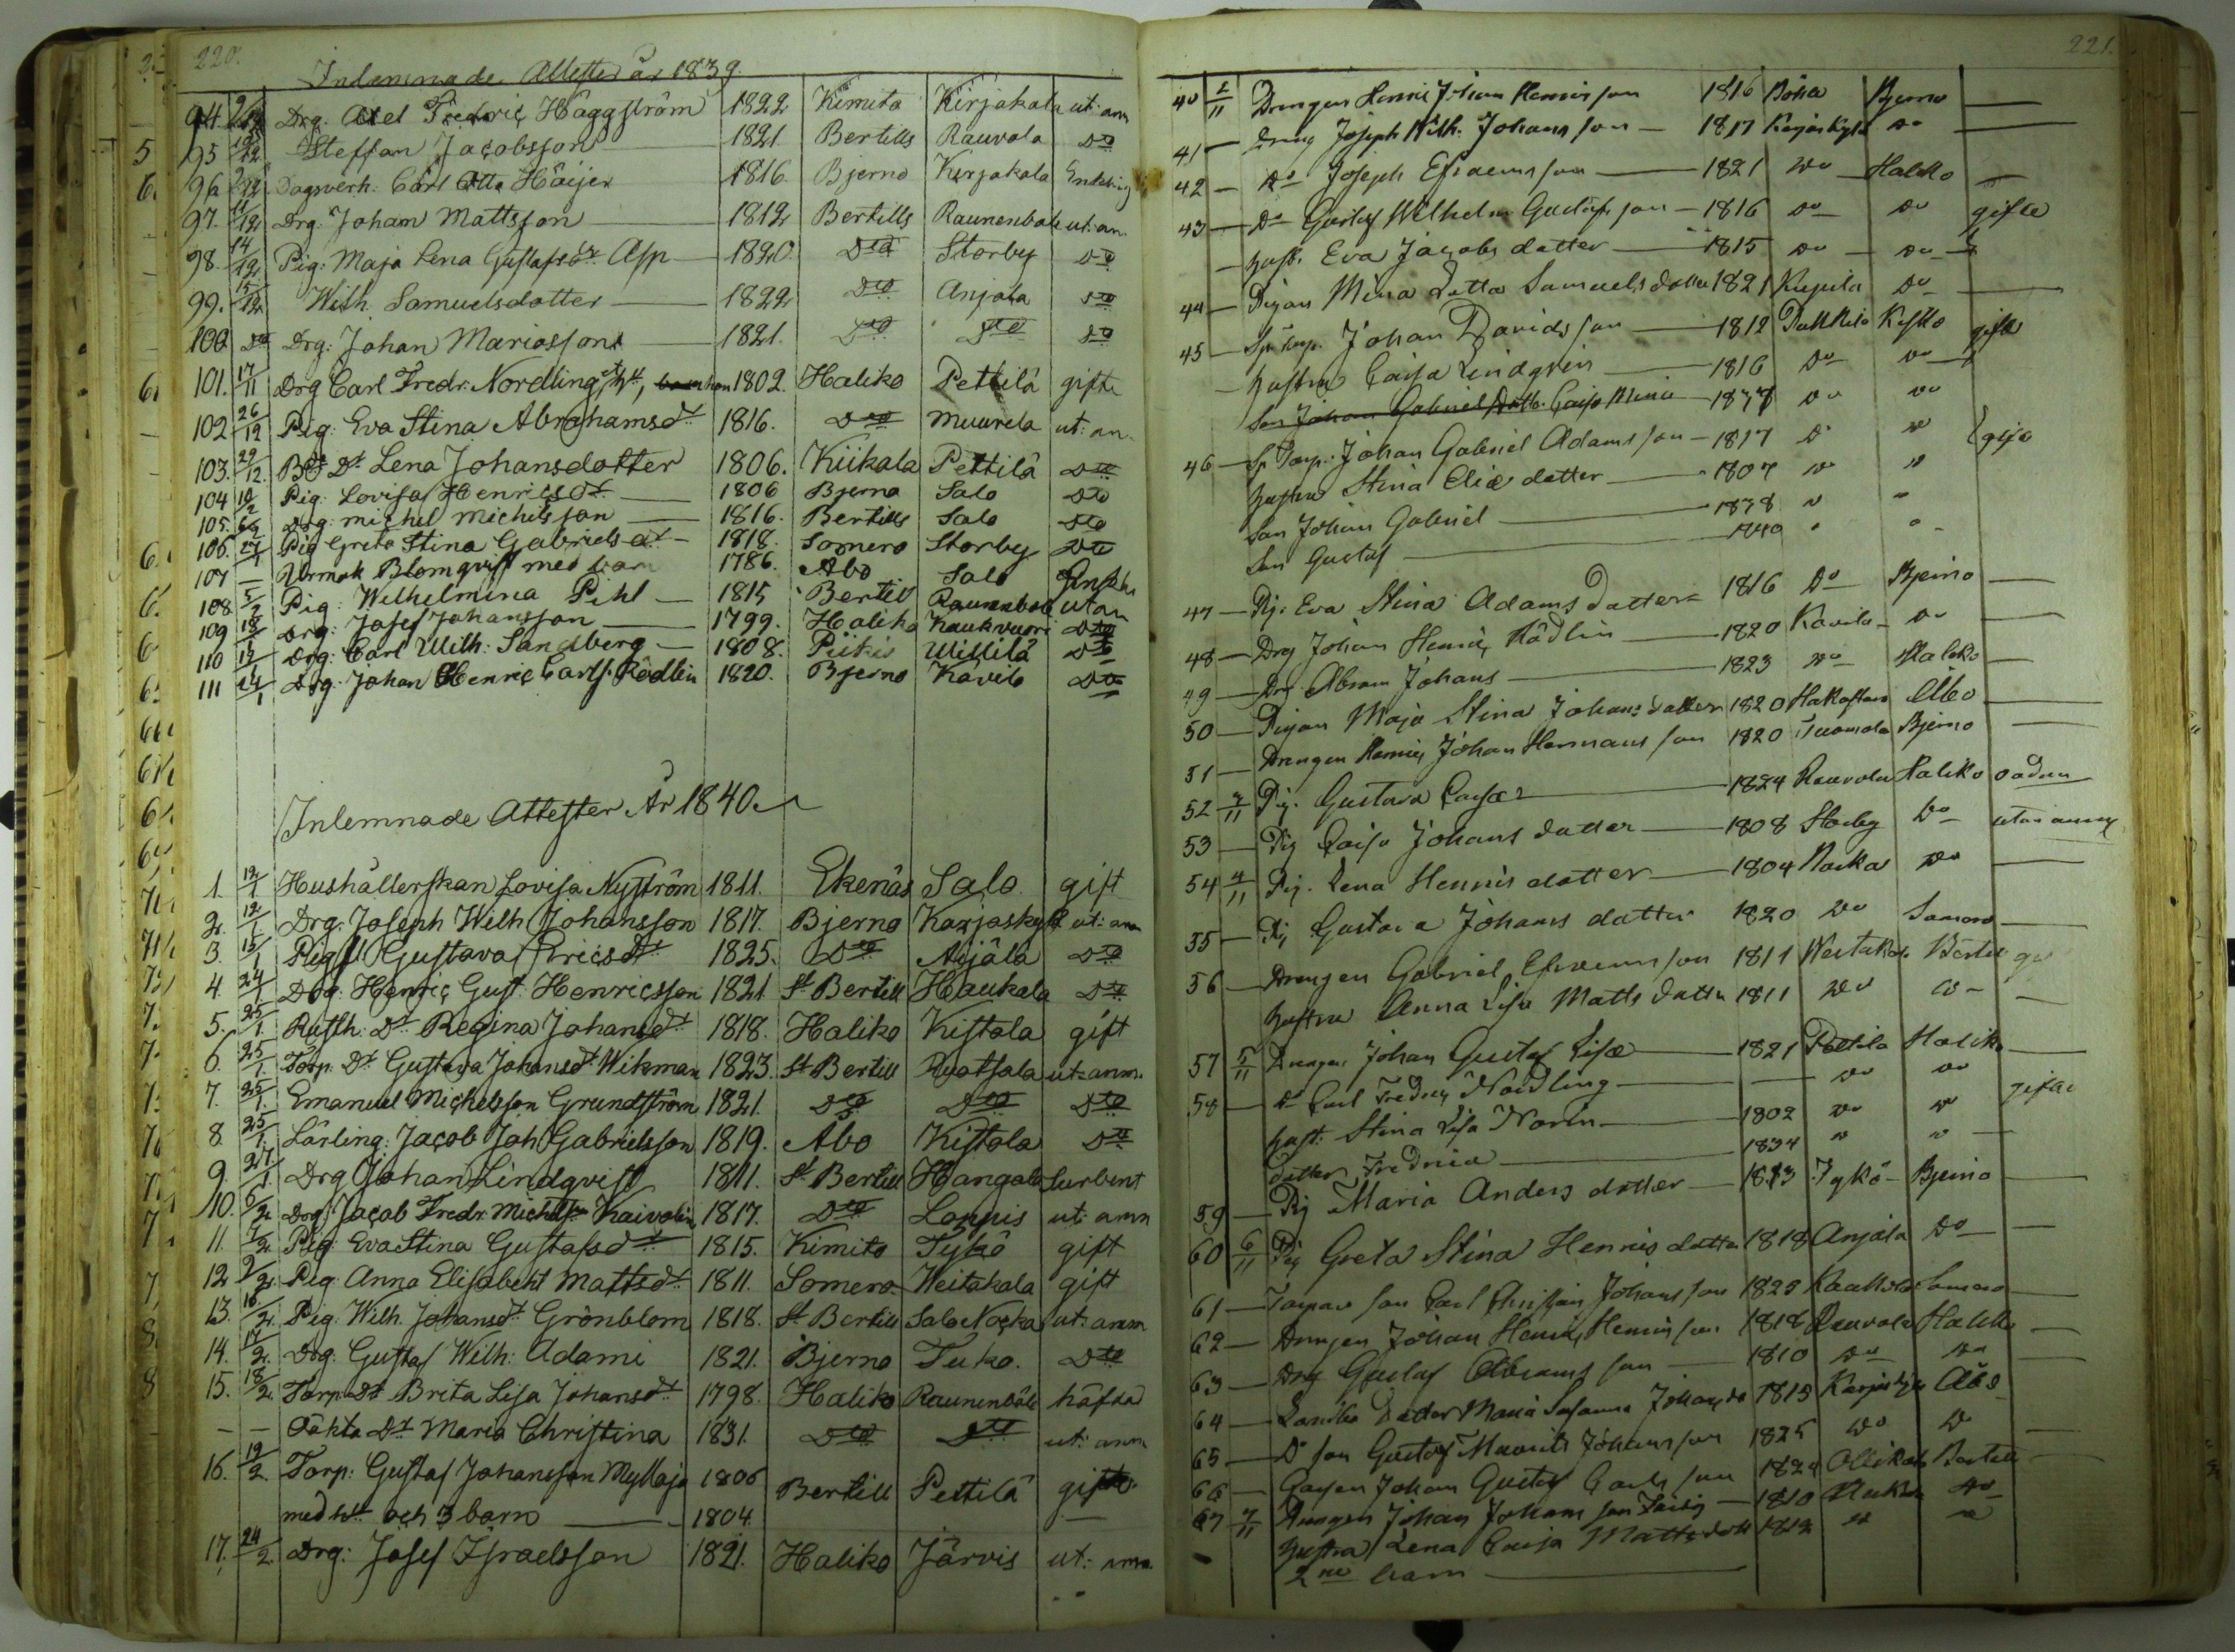 220.
Inlemnade Attester år 1839.
94. 9/12 Drg. Axel Fredric Häggström 1822 Kimito Kirjakala ut: ann
95 12 Steffan Jacobsson 1821 Bertills Rauvola Dto
96 12 Dagsverk. Carl Otto Höijer 1816. Bjerno Kirjakala Enkling
97. 11/12 Drg. Johan Mattsson 1812 Bertills Raunenbole ut: an.
98. 14/12 Pig: Maja Lena Gustafsdr Asp 1820 Dto Storby Dto
99. 15/12 Wilh. Samuelsdotter 1822 Dto Anjala Dto
100 Dto Drg: Johan Mariasson 1821. Dto Dto Dto
101. 17/11 Drg Carl Fredr. Nordling, 1802. Haliko Pettilä gifte
102 26/12 Pig: Eva Stina Abrahamsdt 1816. Dto Muurela ut: an.
103. 29/12. Dt Lena Johansdotter 1806. Kiikala Pettilä Dto
104 10/2 Pig. Lovisa Henricsdt 1806 Bjerno Salo Dto
105. Drg: Michel Michelsson 1816. Bertills Salo Dto
106. 27/1 Pig Greta Stina Gabrielsdt 1818. Somero Storby Dto
107 — Urmak Blomqvist med barn 1786. Abo Salo
108 5/2 Pig: Wilhelmina Pihl 1815 Bertill Raunenbole ut an
109 18/ Drg: Josef Johansson 1799. Haliko Kaukvuori Dto
110 15/1 Drg: Carl Wilh: Sandberg 1808. Piikis Willilä Dto
111 24/1 Drg: Johan Henric Carlss. Rödlin 1820. Bjerno Kavilo Dto
Inlemnade Attester År 1840
1. 12/1 Hushållerskan Lovisa Nyström 1811. Ekenäs Salo gift
2. 12/1 Drg. Joseph Wilh Johansson 1817. Bjerno Karjaskylä ut: ann
3. 15/1 Pig Gustava Ericsdt 1825. Dto Aijälä Dto
4. 24/1 Drg. Henric Gust. Henricsson 1821 St Bertill Haukala Dto
5. 25/1. Rusth: Dt Regina Johansdt 1818. Haliko Kistola gift
6. 25/1. Torp. Dt Gustava Johansdt Wikman 1823. St Bertill Ruotsala ut: anm.
7. 25/1. Emanuel Michelsson Grundström 1821. Dto Dto Dto
8. 25/1. Lärling: Jacob Joh Gabrielsson 1819. Åbo Kistola Dto
9. 27/1. Drg Johan Lindqvist 1811. St Bertill Hangala
10. 6/2 Drg Jacob Fredr. Michelsson Kaivolin 1817. Dto Lonpis ut: anm
11. 7/2 Pig: Eva Stina Gustafsdt 1815. Kimito Tykö gift
12 9/2. Pig. Anna Elisabeht Mattsdt 1811. Somero Weitakala gift
13. 16/2. Pig: Wilh. Johansdt Grönblom 1818. St Bertill Salo Nocka ut: anm
14. 17/2. Drg. Gustaf Wilh: Adami 1821. Bjerno Tuko. Dto
15. 18/2. Torp. Dt Brita Lisa Johansdt 1798. Haliko Raunenbåle häfda
– – Oäkta Dt Maria Christina 1831. Dto Dto ut: anm
16. 19/2. Torp: Gustaf Johansson Myllaja 1806 Bertill Pettilä gift
med Ht och 3 barn 1804.
17. 24/2. Drg: Josef Israelsson 1821. Haliko Järvis ut: anm.
221.
40 2/11 Drengen Henric Johan Henricsson 1816 Böha Bjerno
41 — Dreng Joseph Wilh. Johansson 1817 Karjaskylä Do
42 — Do Joseph Efraemsson 1821 Do Haliko
43 — Do Gustaf Wilhelm Gustafsson 1816 Do Do gifte
— Hust. Eva Jacobs dotter 1815 Do Do
44 — Pigan Mina Lotta Samuels dotter 1821 Do
45 — Johan Davidsson 1812 Kisko gifte
— Hustru Caisa Lindgren 1816 Do Do
Son Johan Gabriel Dott. Caisa Mina 1838 Do Do
46 — Sp Torp. Johan Gabriel Adamsson 1817 D gifta
Hustru Stina Eliæ dotter 1807
Son Johan Gabriel 1838
Son Gustaf 1840
47 — Pig. Eva Stina Adams Dotter 1816 Do Bjerno
48 — Drg Johan Henric Rödlin 1820 Kavila Do
49 — Drg Abram Johans 1823 Do Haliko
50 — Pigan Maja Stina Johans dotter 1820 Åbo
51 — Drengen Henric Johan Hermansson 1820 Tuomola Bjerno
52 3/11 Pig. Gustava Caisæ 1824 Rauvola Haliko
53 — Pig Caisa Johans dotter 1808 Storby Do utan anm
54 4/11 Pig. Lena Henrics dotter 1804 Nocka Do
55 — Pig Gustava Johans dotter 1820 Do Somero
56 — Drengen Gabriel Efraemsson 1811 Bertill
Hustru Anna Lisa Matts dotter 1811 Do
57 5/11 Drengen Johan Gustaf Lisæ 1821 Pettila Haliko
58 — D Carl Fredric Nordling Do Do
Hust: Stina Lisa Norlin 1802 Do gifta
dotter Fredrica 1834
59 — Pig Maria Anders dotter 1813 Tykö Bjerno
60 6/11 Pig Greta Stina Henrics dotter 1818 Anjala Do
61 — son Carl Christian Johansson 1825 Somero
62 — Drengen Johan Henric Henricsson 1818 Rauvola Haliko
63 — Drg Gustaf Abramsson 1810 Do Do
64 — Dotter Maria Susanna Johansdo 1815 Åbo
65 — D son Gustaf Maurits Johansson 1825 Do
66 — Johan Gustaf Carlsson 1824 Ollikala Bertill
67 7/11 Drengen Johan Johansson 1810
Hustru Lena Caisa Mattsdotter 1812
2ne barn